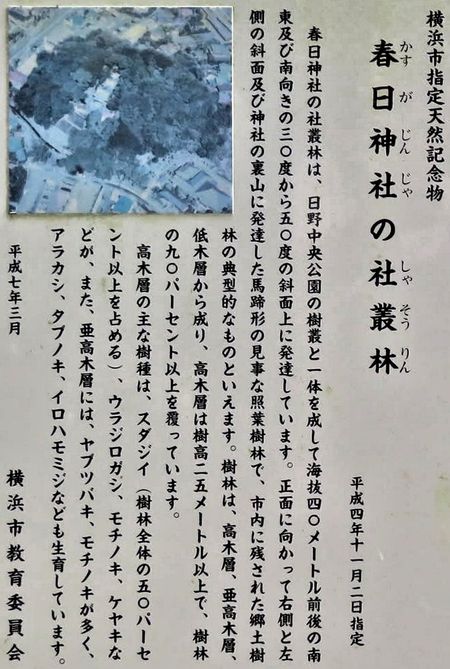 横浜市指定天然記念物
春日神社の社叢林
かすがじんじゃ しゃそうりん
平成四年十一月二日指定
春日神社の社叢林は、日野中央公園の樹叢と一体を成して海抜四〇メートル前後の南
東及び南向きの三〇度から五〇度の斜面上に発達しています。正面に向かって右側と左
側の斜面及び神社の裏山に発達した馬蹄形の見事な照葉樹林で、市内に残された郷土樹
林の典型的なものといえます。樹林は、高木層、亜高木層、
低木層から成り、高木層は樹高二五メートル以上で、樹林
の九〇パーセント以上を覆っています。
高木層の主な樹種は、スダジイ(樹林全体の五〇パーセ
ント以上を占める)、ウラジロガシ、モチノキ、ケヤキな
どが、また、亜高木層には、ヤブツバキ、モチノキが多く、
アラカシ、タブノキ、イロハモミジなども生育しています。
平成七年三月
横浜市教育委員会